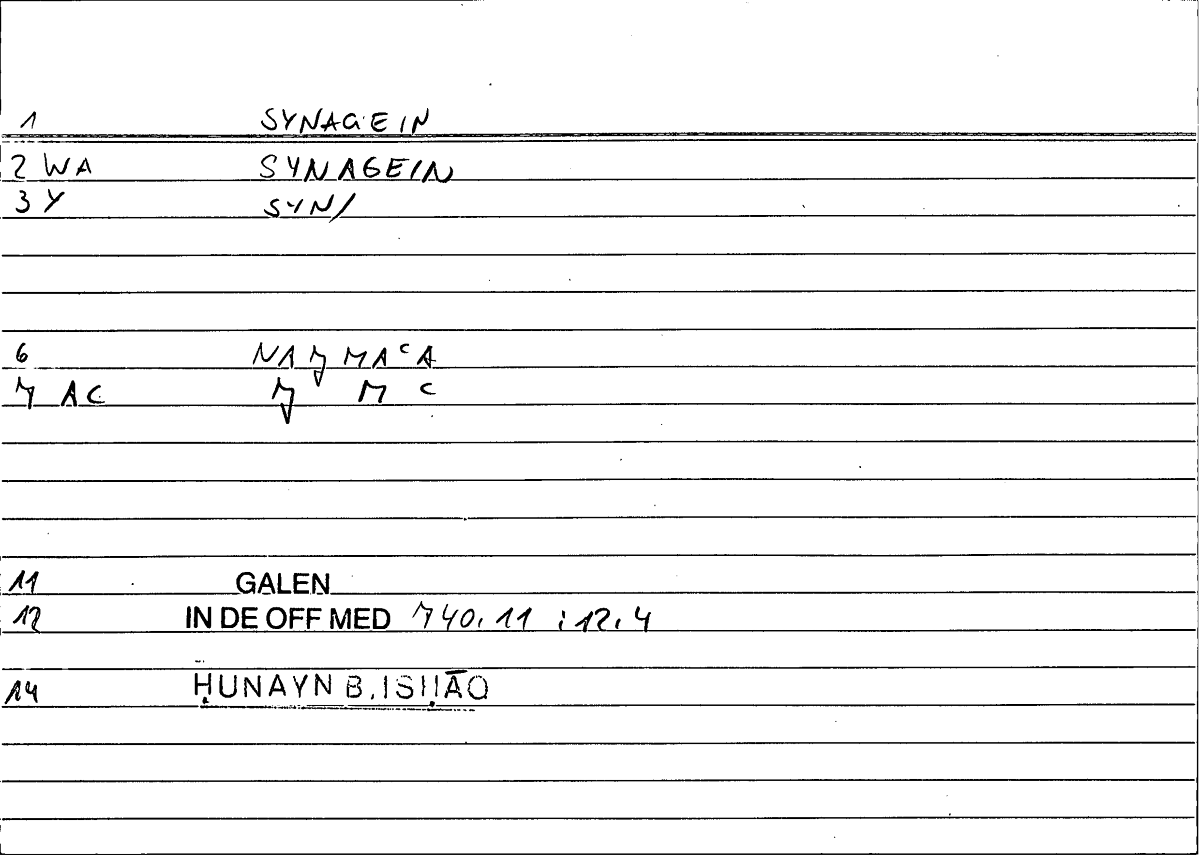 1 SYNAGEIN
2 WA SYNAGEIN
3 Y SYN/
6 NA J MA ᶜA
7 AC J M ᶜ
11 GALEN
12 IN DE OFF MED 740.11 : 12.4
14 ḤUNAYN B. ISḤĀQ